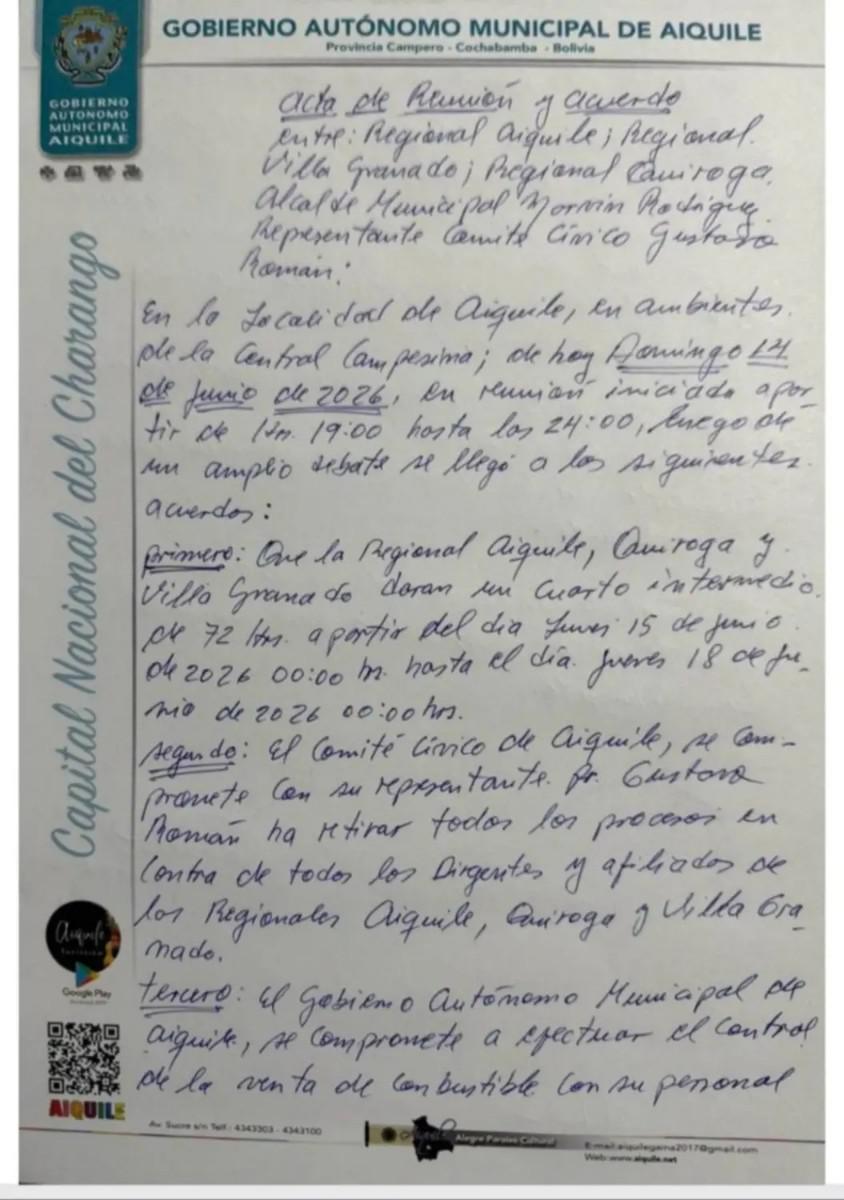 GOBIERNO AUTÓNOMO MUNICIPAL DE AIQUILE
Provincia Campero - Cochabamba - Bolivia
GOBIERNO
AUTONOMO
MUNICIPAL
AIQUILE
Acta de Reunión y acuerdo
entre: Regional Aiquile; Regional.
Villa Granado; Regional Quiroga.
Alcalde Municipal Rodriguez
Representante Comité Cívico Gustavo
Román:
En la Localidad de Aiquile, en ambientes.
de la Central Campesina; de hoy Domingo 14
de junio de 2026, en reunión iniciada apar-
tir de Hrs. 19:00 hasta las 24:00, luego de
un amplio debate se llegó a los siguientes.
acuerdos:
primero: Que la Regional Aiquile, Quiroga y.
Villa Granado daran un cuarto intermedio.
de 72 Hrs. a partir del dia lunes 15 de junio.
de 2026 00:00 hr. hasta el día. jueves 18 de ju-
nio de 2026 00:00 hrs.
segundo: El Comité Cívico de Aiquile, se com-
promete con su representante. Gustavo
Román ha retirar todos los procesos en
contra de todos los Dirgentes y afiliados de
los Regionales Aiquile, Quiroga y Villa Gra-
nado.
tercero: El Gobierno Autónomo Municipal de
Aiquile, se compromete a efectuar el control
de la venta de combustible con su personal
Capital Nacional del Charango
Aiquile
Google Play
AIQUILE
Av. Sucre s/n Telf.: 4343303 - 4343100
Alegre Paraíso Cultural
E-mail:aiquilegama2017@gmail.com
Web:www.aiquile.net